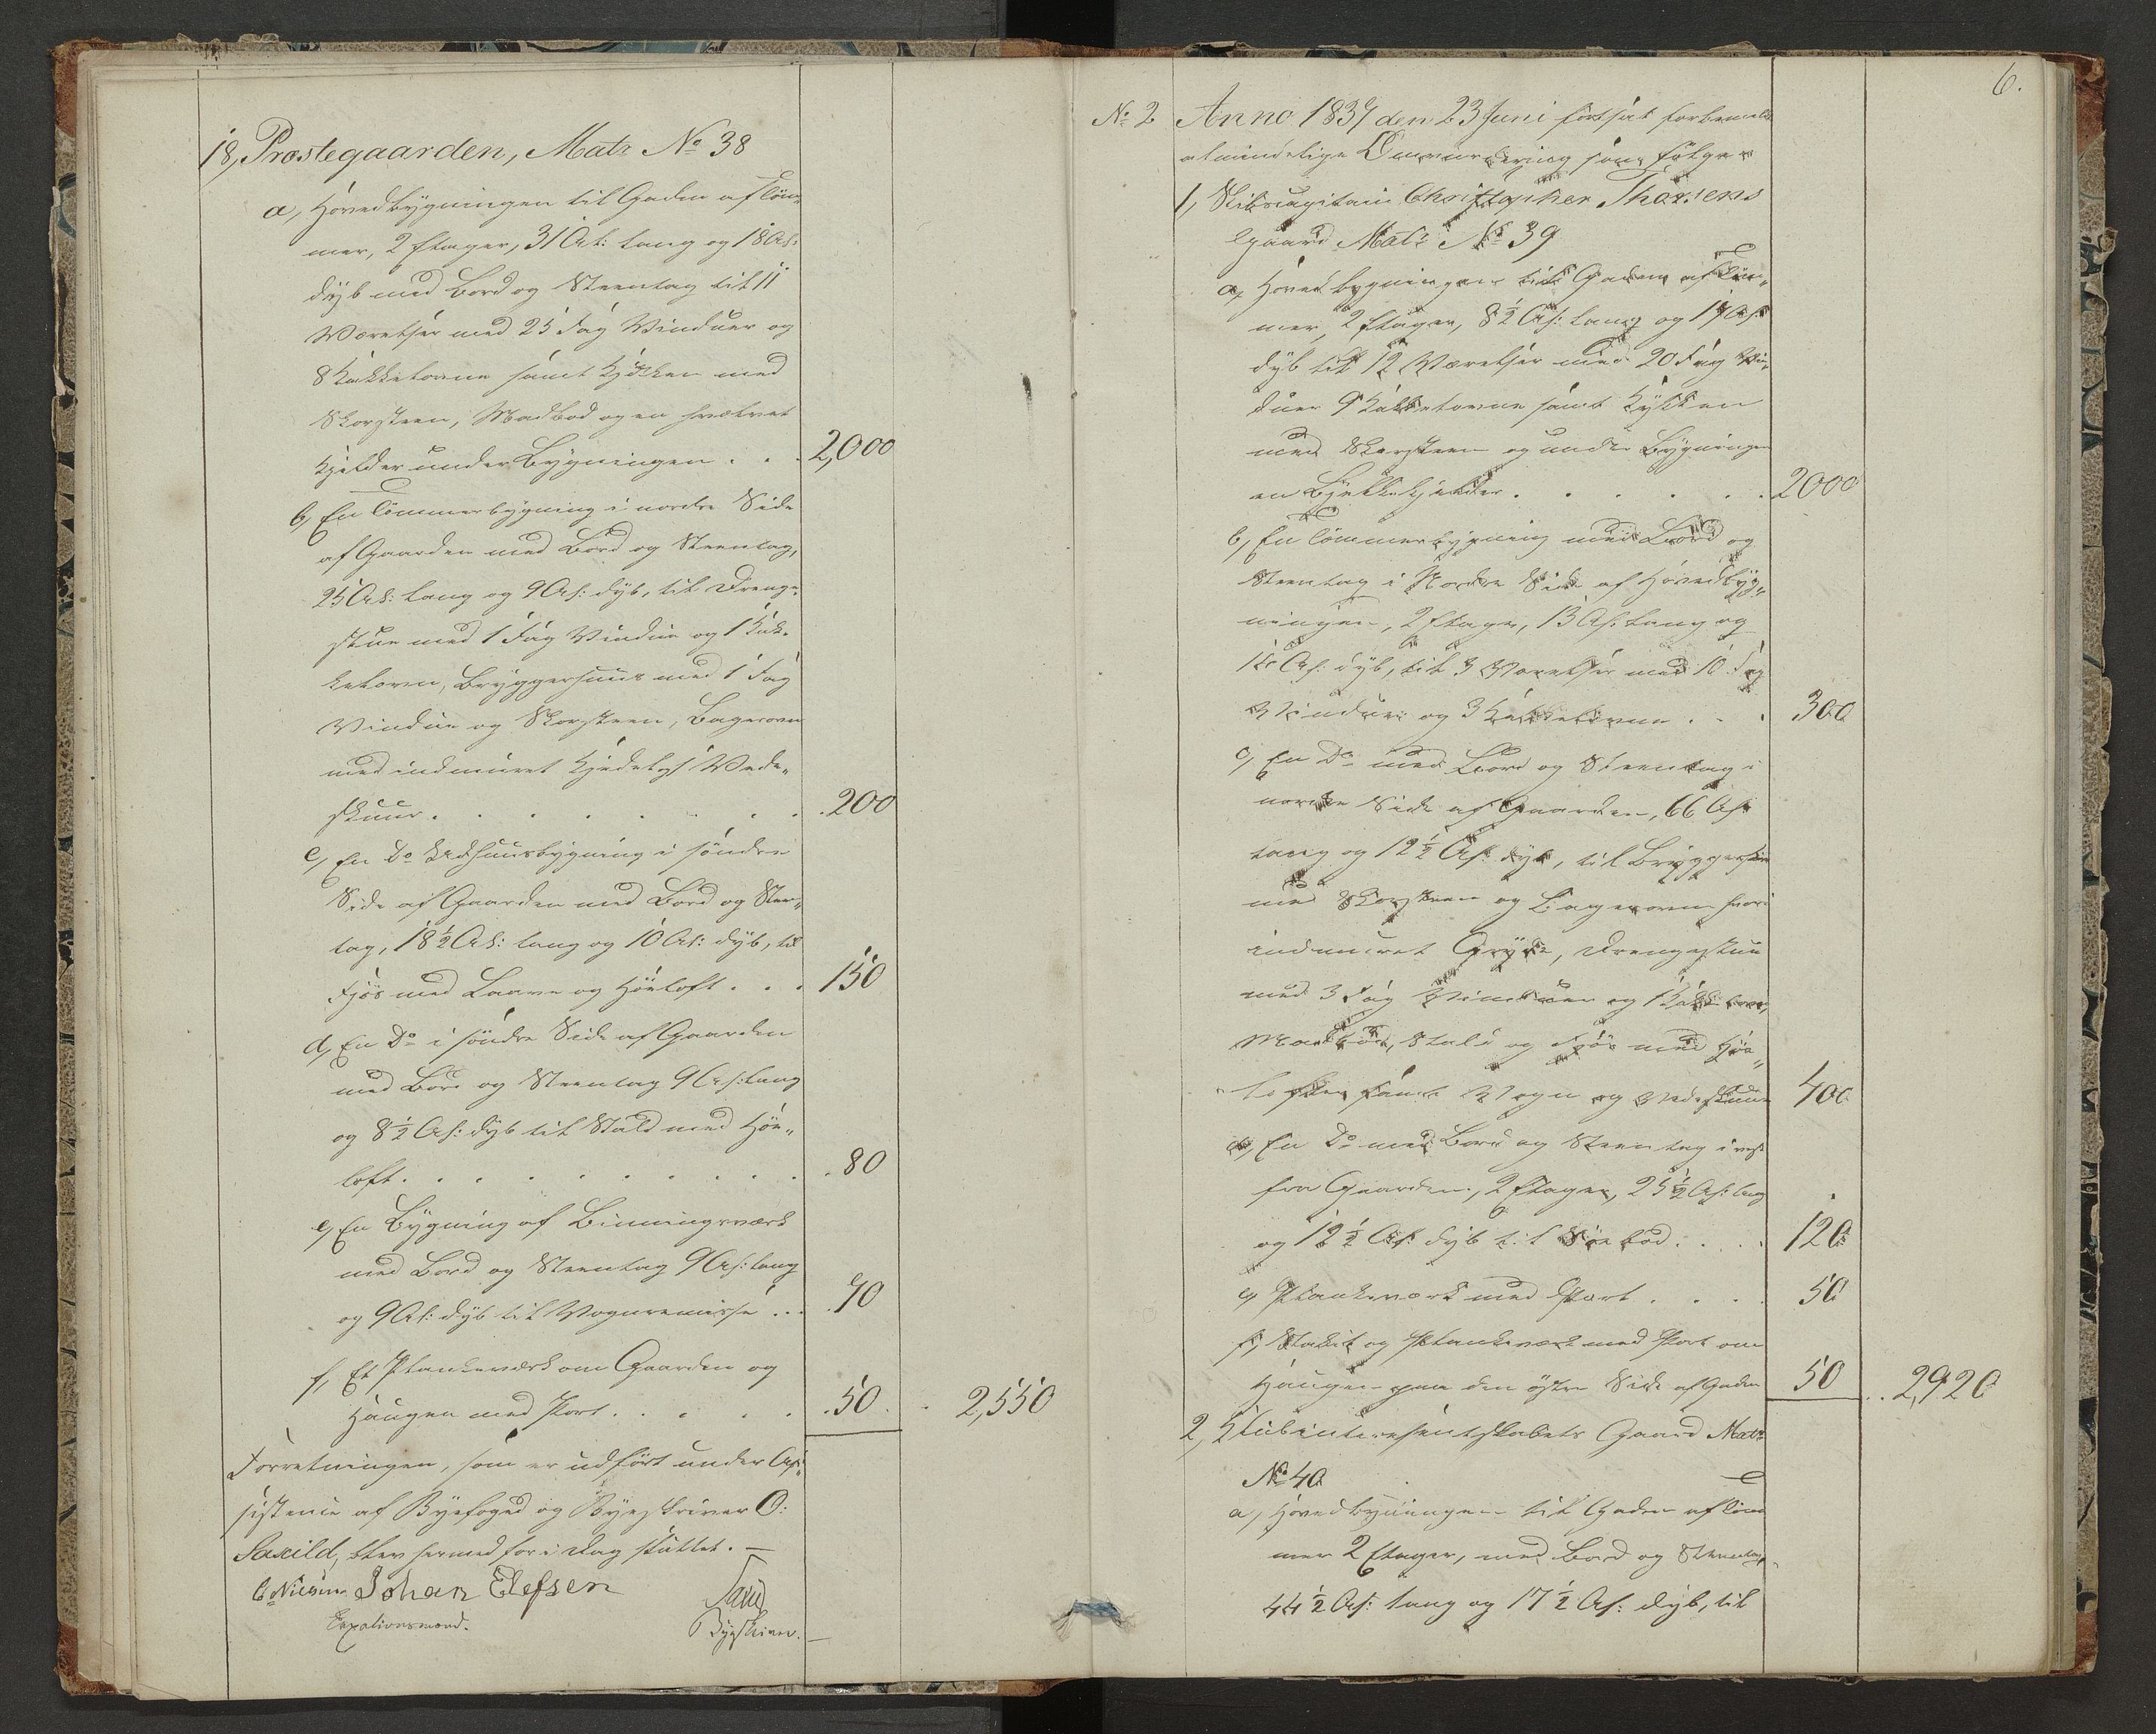 18, Præstegaarden, Matr No 38
a, Hovedbygningen til Gaden af Töm„
mer, 2 Etager, 31 Al: lang og 18 Al:
dyb med Bord og Steentag til 11
Værelser med 25 Fag Vinduer og
8 Kakkelovne samt Kjökken med
Skorsteen, Madbod og en hvælvet
Kjelder under Bygningen . . . 2,000
b, En Tömmerbygning i nordre Side
af Gaarden med Bord og Steentag,
25 Al: lang og 9 Al: dyb, til Drenge„
stue med 1 Fag Vindue og 1 Kak„
kelovn, Bryggerhuus med 1 Fag
Vindue og Skorsteen, Bagerovn
med indmuret Kjedel og Vede„
skuur . . . . . . . 200
c, En Do Udhuusbygning i söndre
Side af Gaarden med Bord og Steen„
tag, 18½ Al: lang og 10 Al: dyb, til
Fjös med Laave og Höeloft . . . 150
d, En Do i söndre Side af Gaarden
med Bord og Steentag 9 Al: lang
og 8½ Al: dyb til Stald med Höe„
loft . . . . . . . . 80
e, En Bygning af Bindingsværk
med Bord og Steentag 9 Al: lang
og 9 Al: dyb til Vognremisse . . . 70
f, Et Plankeværk om Gaarden og
Haugen med Port . . . . . 50 . 2,550
Forretningen, som er udfört under As„
sistence af Byefoged og Byeskriver O:
Saxild, blev hermed for i Dag sluttet. —
Johan Elefsen
Taxationsmænd.
Saxild
Byeskriver.
6.
No 2 Anno 1837 den 23 Juni fortsat forbemeldte
almindelige Omvurdering som fölger
1, Skibscapitain Christopher Thorsens
Gaard Matr No 39
a, Hovedbygningen til Gaden af Töm„
mer, 2 Etager, 8½ Al: lang og 17 Al:
dyb til 12 Værelser med 20 Fag Vin„
duer 9 Kakkelovne samt Kjökken
med Skorsteen og under Bygningen
en Bjelkekjelder . . . . . . 2000
b, En Tömmerbygning med Bord og
Steentag i Nordre Side af Hovedbyg„
ningen, 2 Etager, 13 Al: lang og
Al: dyb, til 3 Værelser med 10 Fag
Vinduer og 3 Kakkelovne . . . 300
c, En Do med Bord og Steentag i
nordre Side af Gaarden, 66 Al:
lang og 12½ Al: dyb, til Bryggerhuus
med Skorsteen og Bagerovn hvori
indmuret Gryde, Drengestue
med 3 Fag Vinduer og 1 Kakkelovn,
Madbod, Stald og Fjös med Höe„
lofter samt Vogn og Vedeskuur 400
d, En Do med Bord og Steentag i vest
fra Gaarden, 2 Etager, 25½ Al: lang
og 12½ Al: dyb til Söebod . . . . 120
e, Plankeværk med Port . . . . 50
f, Stakit og Plankeværk med Port om
Haugen paa den östre Side af Gaden 50 . . 2,920
2, Klubinteressentskabets Gaard Matr
No 40
a, Hovedbygningen til Gaden af Töm
mer 2 Etager, med Bord og Steentag,
44½ Al: lang og 17½ Al: dyb, til